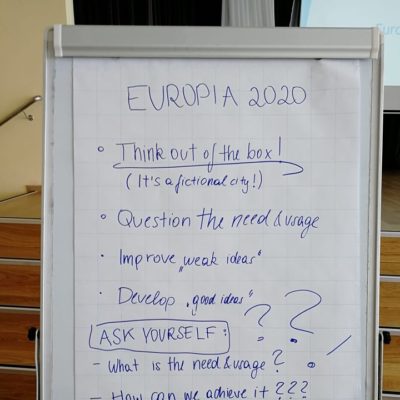 EUROPIA 2020
° Think out of the box!
(It's a fictional city!)
° Question the need & usage
· Improve „weak ideas“
· Develop „good ideas“ ? ?
ASK YOURSELF:
- What is the need & usage ?
- How can we achieve it ???
Euro